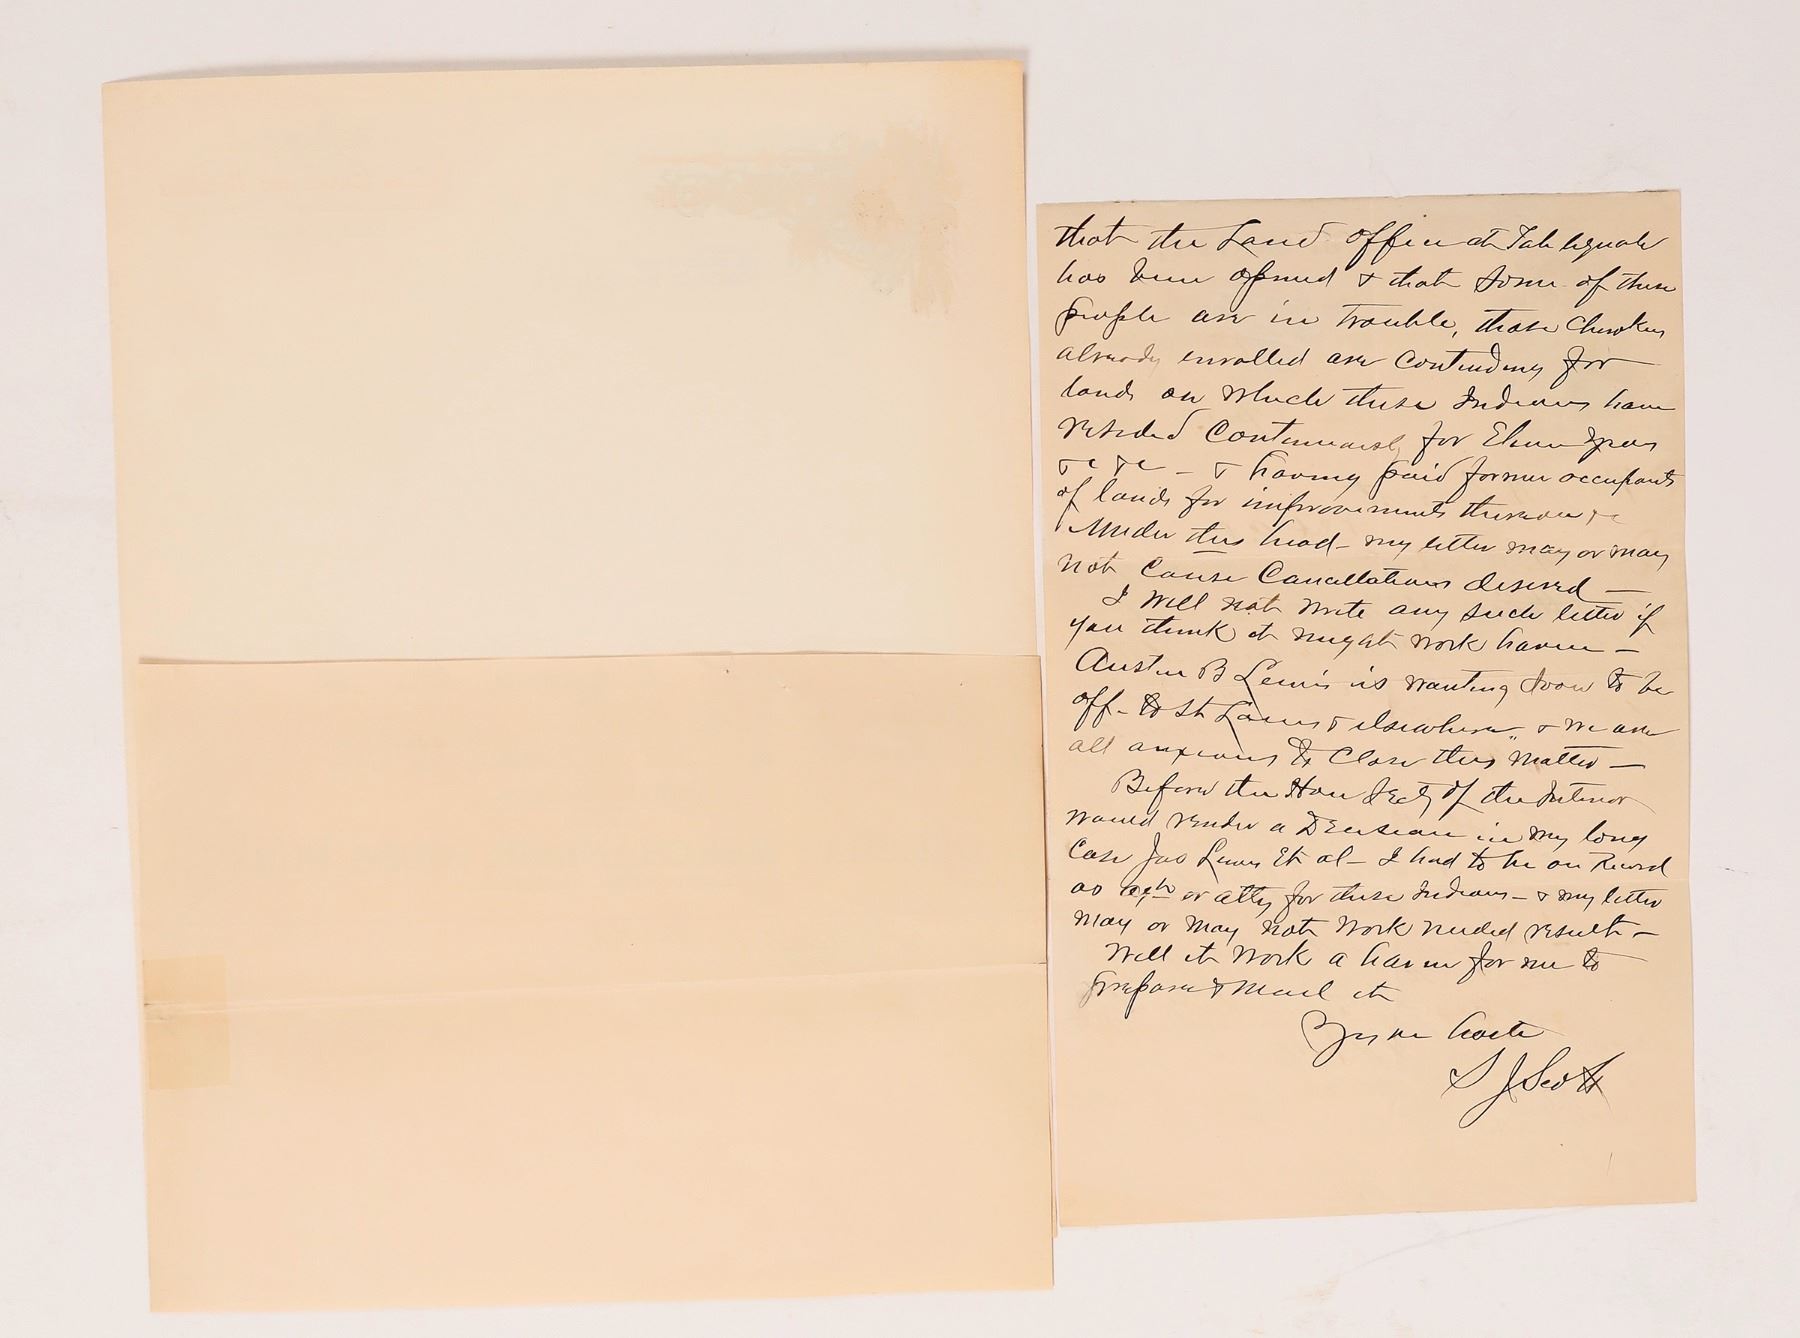 that the Land office at Tahlequah
has been opened & that some of these
people are in trouble, those Cherokees
already enrolled are contending for
lands on which these Indians have
resided continuously for Eleven years
&c &c - & having paid former occupants
of lands for improvements thereon &c
Under this head - my letter may or may
not cause cancellations desired -
I will not write any such letter if
you think it might work harm -
Austin B Lewis is wanting soon to be
off - to St Louis & elsewhere, & we are
all anxious to close this matter -
Before the Hon Secty of the Interior
would render a Decision in my long
case Jas Et al - I had to be on record
as or atty for these Indians - & my letter
may or may not work needed result -
Will it work a harm for me to
prepare & mail it
Yours in haste
S J Scott